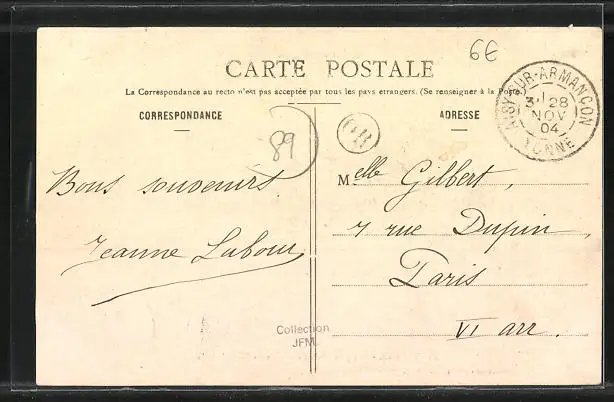 6E
CARTE POSTALE
La Correspondance au recto n'est pas acceptée par tous les pays etrangers. (Se renseigner à la Poste
CORRESPONDANCE
ADRESSE
AISY-SUR-ARMANÇON
3E 28
NOV
04
YONNE
89
Bons souvenirs
Jeanne Labour
Melle Gilbert,
7 rue Dupin,
Paris
VI arr.
Collection
JFM